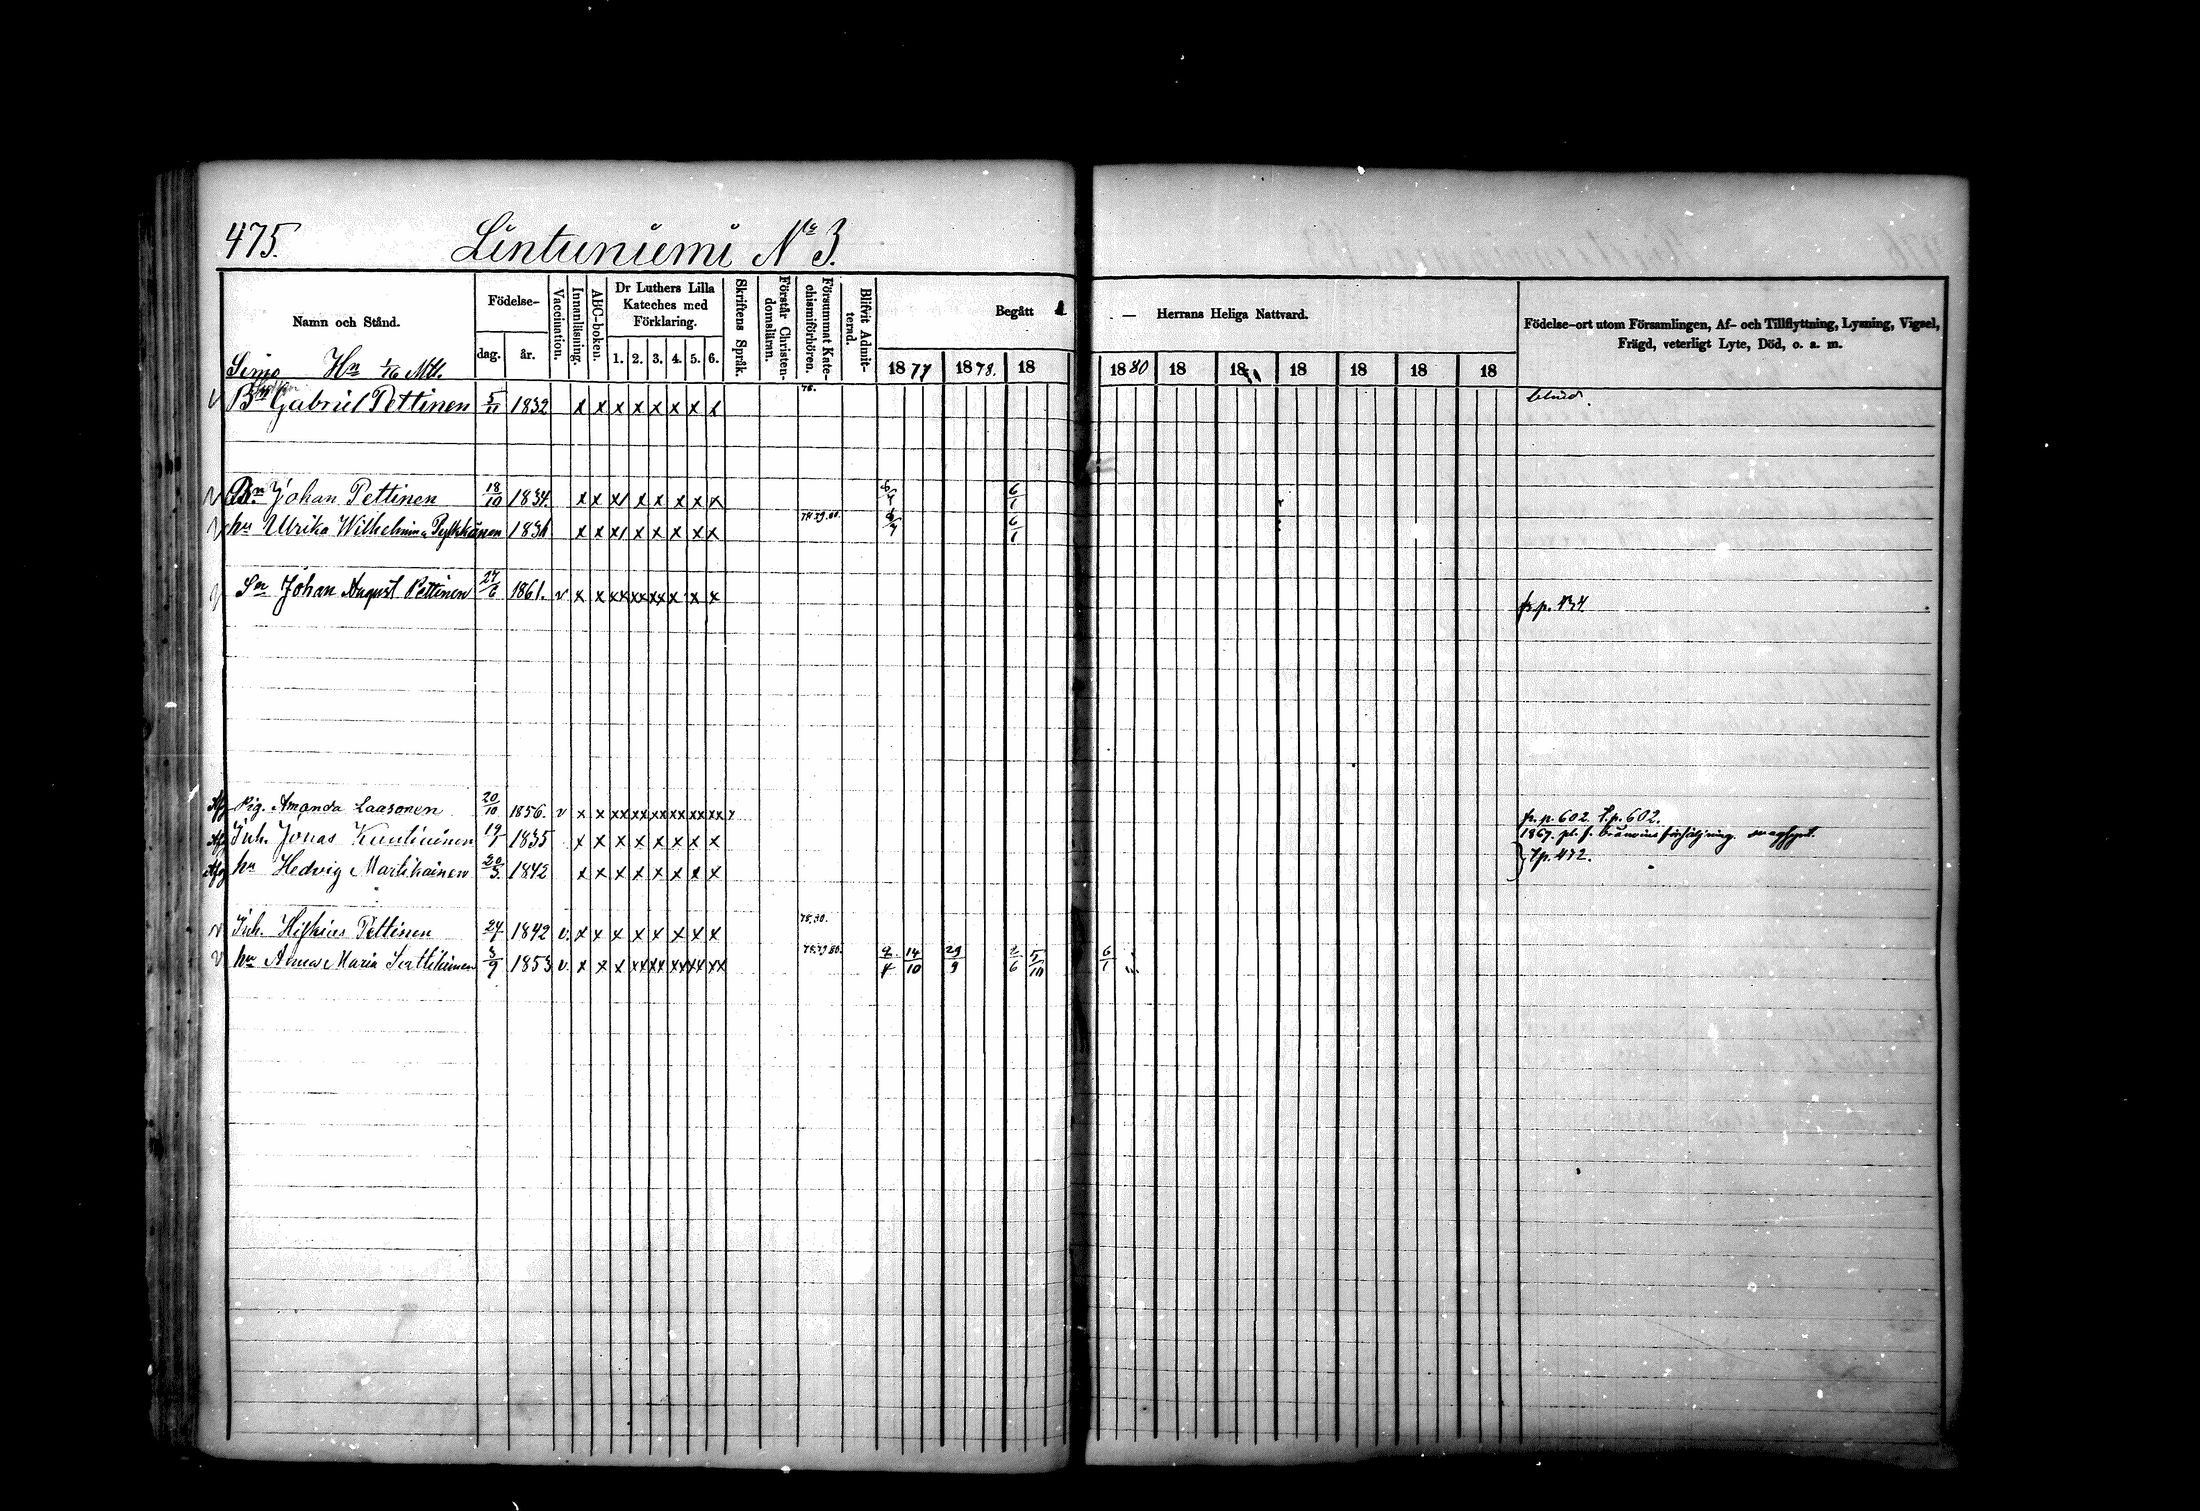 475. Lintuniemi No 3.
Namn och Stånd.
Födelse-
dag. år.
Vaccination.
Innanläsning.
ABC-boken.
Dr Luthers Lilla Kateches med Förklaring.
1. 2. 3. 4. 5. 6.
Skriftens Språk.
Förstår Christendomsläran.
Försummat Katechismiförhören.
Blifvit Admitterad.
Begått — Herrans Heliga Nattvard.
1877 1878. 18 1880 18 18 18 18 18 18
Födelse-ort utom Församlingen, Af- och Tillflyttning, Lysning, Vigsel, Frägd, veterligt Lyte, Död, o. a. m.
Simo Hn 1/6 Mtl.
v Bn Gabriel Pettinen 5/11 1832 x x x x x x x x 78. blind.
v Bn Johan Pettinen 18/10 1834. x x x x x x x x 6/1
v hu Ulrika Wilhelmina Pykkänen x x x x x x x x 78.79.80. 6/1
Sn Johan August Pettinen 27/6 1861. v x x xx xx xx x x x
Afg Pig. Amanda Laasonen 20/10 1856. v x x xx xx xx xx xx xx fr. p. 602. t. p. 602.
Afg Inh. Jonas 1835 x x x x x x x x 1867. pl. f.
Afg hu Hedvig Martikainen 20/3. 1842 x x x x x x x x t p. 472.
v Inh. Pettinen 1842 v. x x x x x x x x
v hu Maria 3/9 1853 v. x x x xx xx xx xx xx 78.79.80. 14/10 29/9 2/6 5/10 6/1